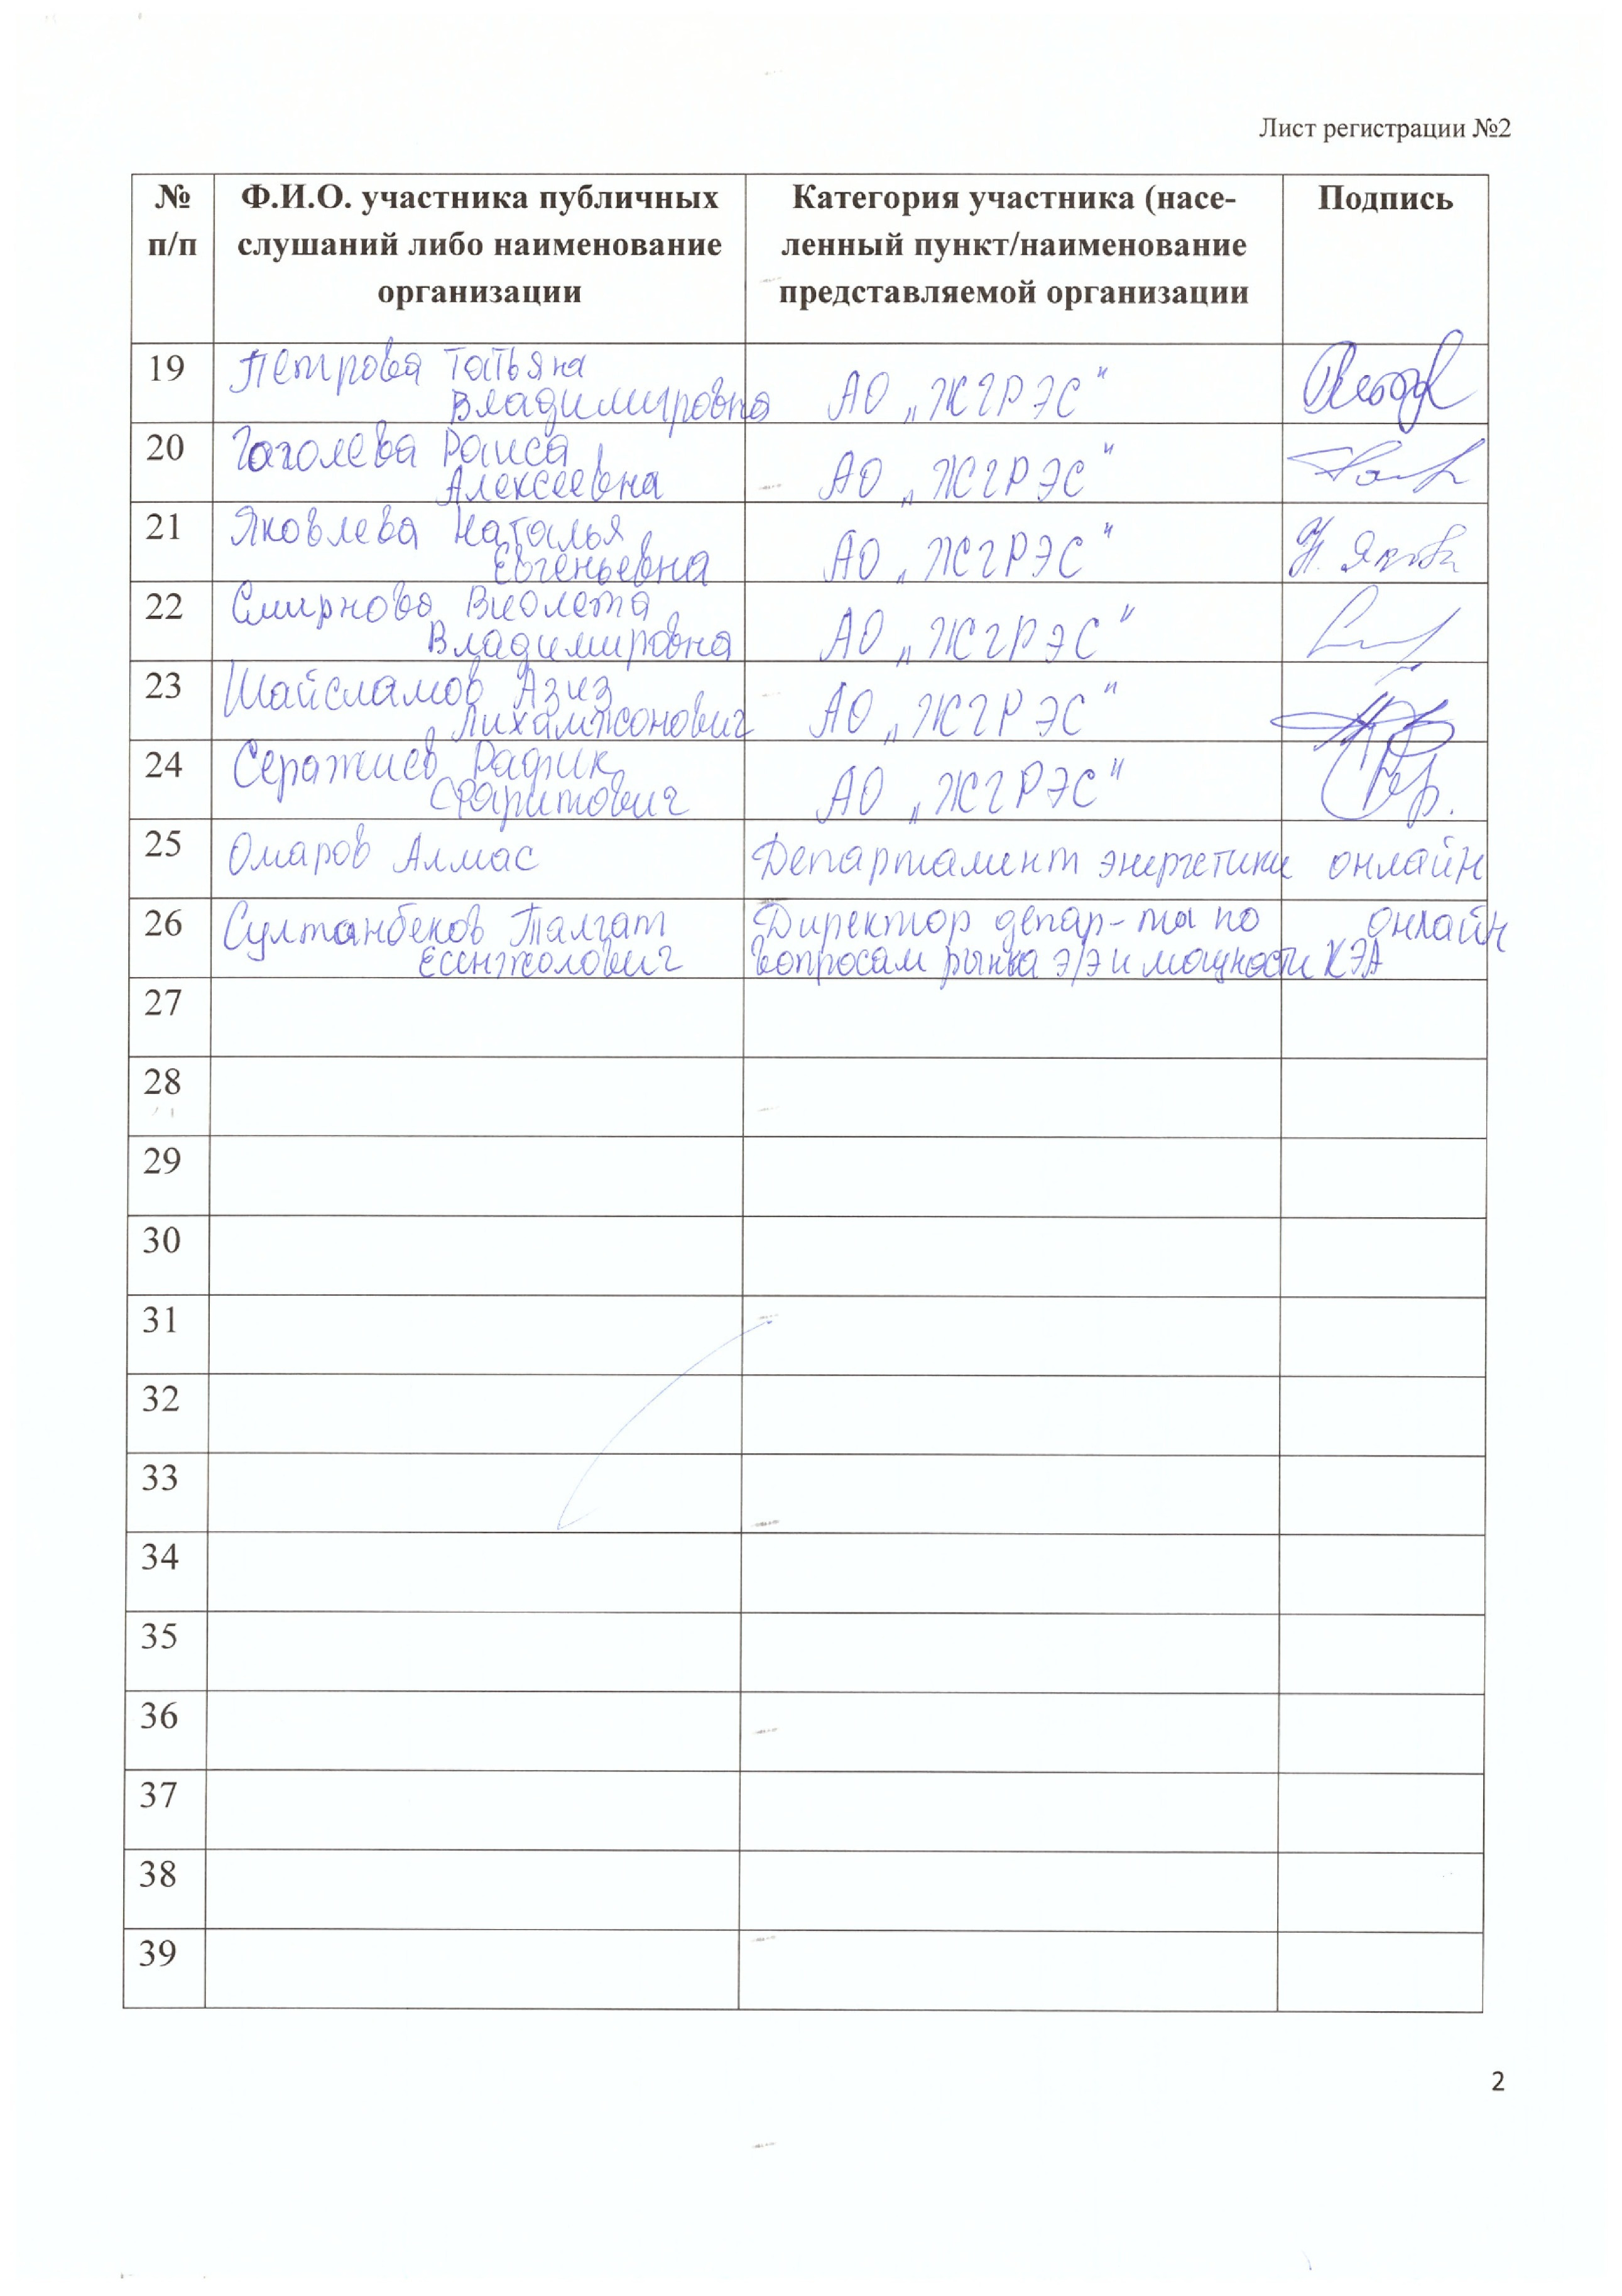 Лист регистрации №2
№ п/п
Ф.И.О. участника публичных
слушаний либо наименование
организации
Категория участника (насе-
ленный пункт/наименование
представляемой организации
Подпись
19 Петрова Татьяна
Владимировна АО „ЖГРЭС"
20 Гоголева Раиса
Алексеевна АО „ЖГРЭС"
21 Яковлева Наталья
Евгеньевна АО „ЖГРЭС"
22 Смирнова Виолета
Владимировна АО „ЖГРЭС"
23 Шайсламов Азиз
Лихамжонович АО „ЖГРЭС"
24 Серажиев Рафик
Фаритович АО „ЖГРЭС"
25 Омаров Алмас Департамент энергетики онлайн
26 Султанбеков Талгат Директор депар-та по онлайн
Есинжолович вопросам рынка э/э и мощности КЭА
27
28
29
30
31
32
33
34
35
36
37
38
39
2